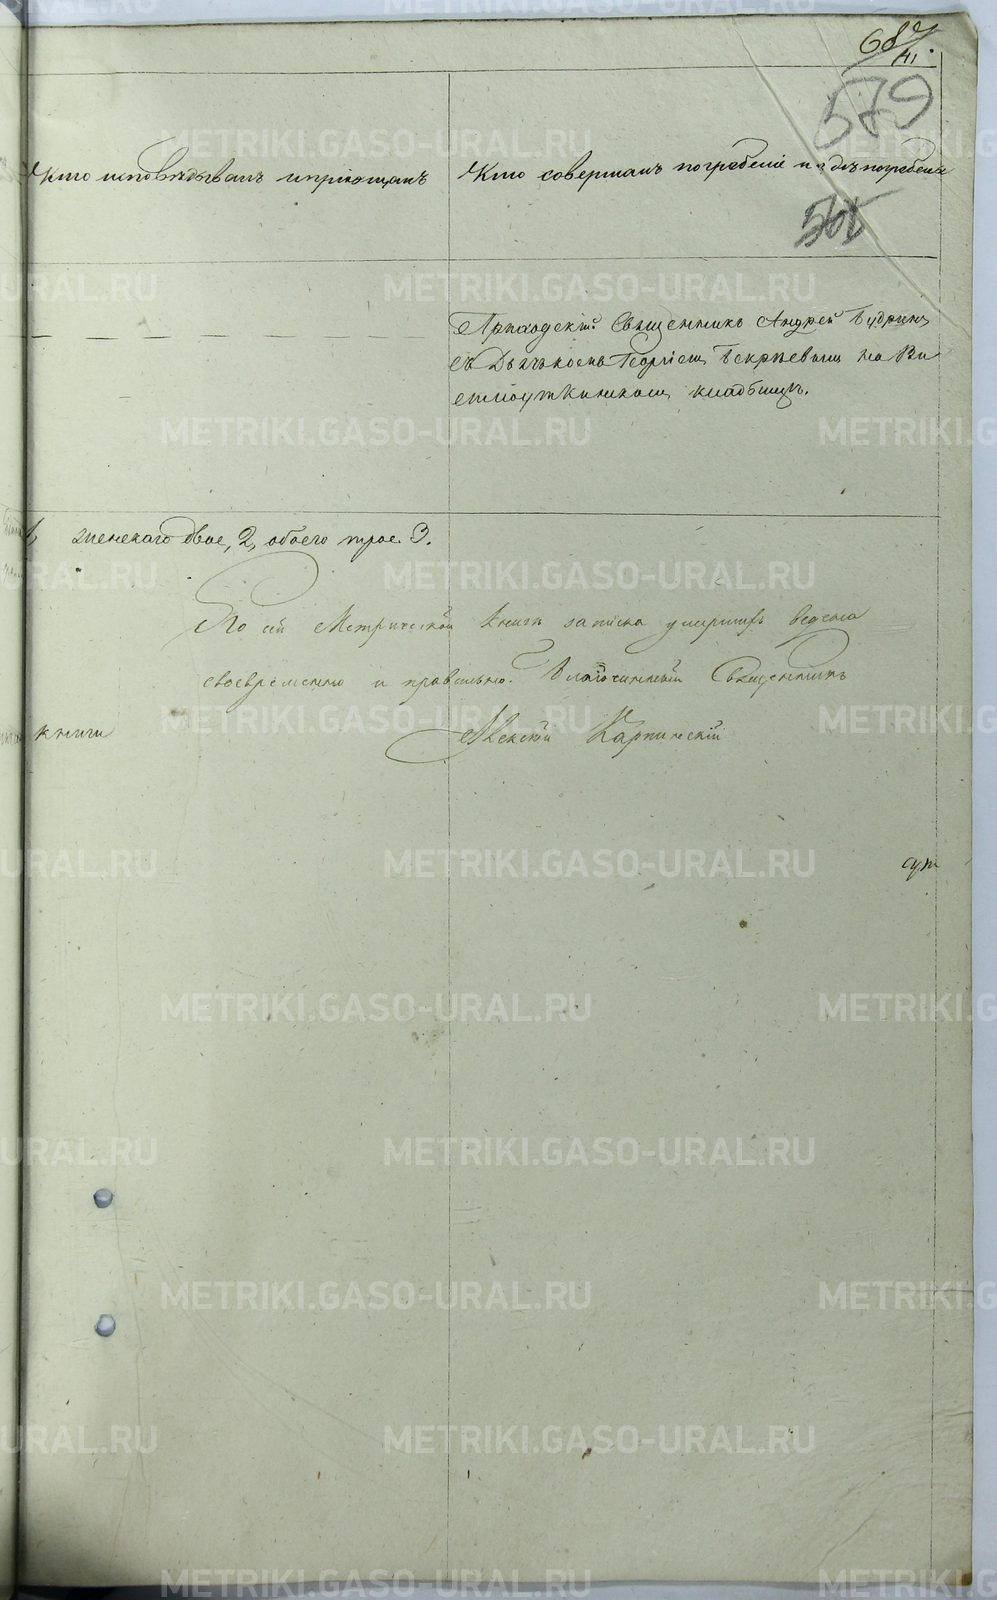 682
41.
579
Кто исповѣдывалъ и пріобщалъ
Кто совершалъ погребеніе и гдѣ погребены
561
Приходскій Священникъ Андрей Будринъ
съ Дьячкомъ Георгіемъ на Ви
симоуткинскомъ кладбищѣ.
женскаго двое, 2, обоего трое. 3.
По сей Метрической книгѣ записка умершихъ ведена
своевременно и правильно. Благочинный Священникъ
книги
Алексій Карпинскій
METRIKI.GASO-URAL.RU